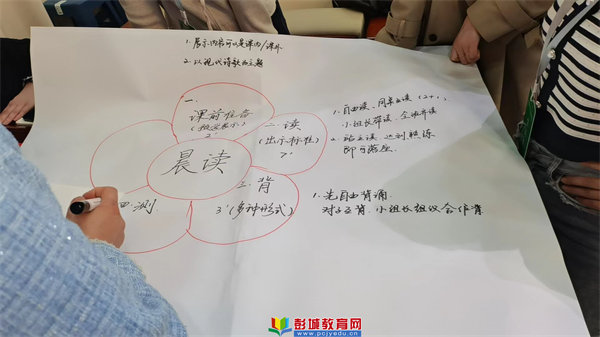 1. 展示内容可以是课内/课外
2. 以现代诗歌为主题
一、
课前准备
(独立展示)
2'
二、读
(出示标准)
7'
1. 自由读、同桌互读 (2+1)
小组长领读、全班齐读
2. 站立读、达到熟练
即可落座
晨读
三、背
3'(多种形式)
1. 先自由背诵
对子互背、小组长组织合作背
四、测
彭城教育网
www.pcjyedu.cn